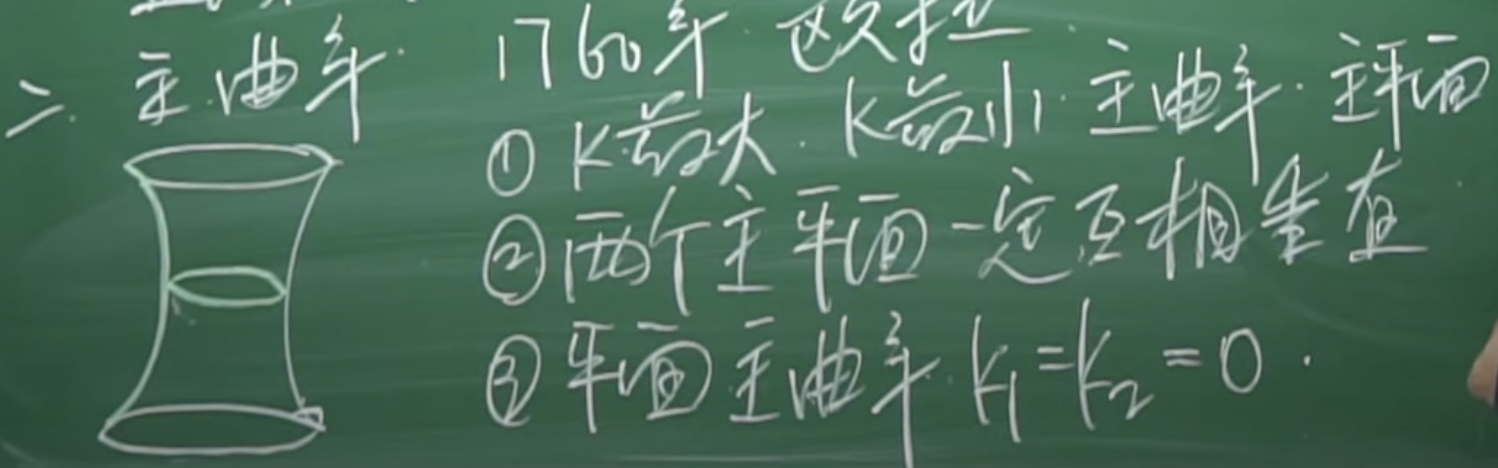 二. 主曲率. 1760年. 欧拉.
① K最大. K最小. 主曲率. 主平面
② 两个主平面一定互相垂直
③ 平面主曲率 K₁=K₂=0.